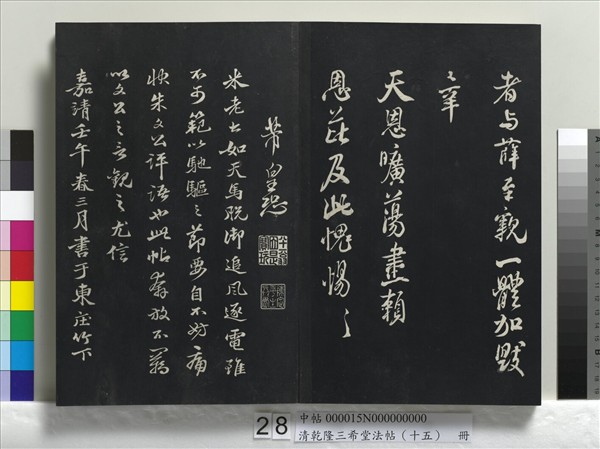 者与薛至親一體加毀
之牽
天恩曠蕩盡賴
恩茈及此愧惕之
芾皇恐
米老書如天馬脫御追風逐電雖
不可範以馳驅之節要自不妨痛
快朱文公評語也此帖奔放不羈
以文公之言觀之尤信
嘉靖壬午春三月書于東庄竹下
28
中帖 000015N000000000
清乾隆三希堂法帖（十五） 冊